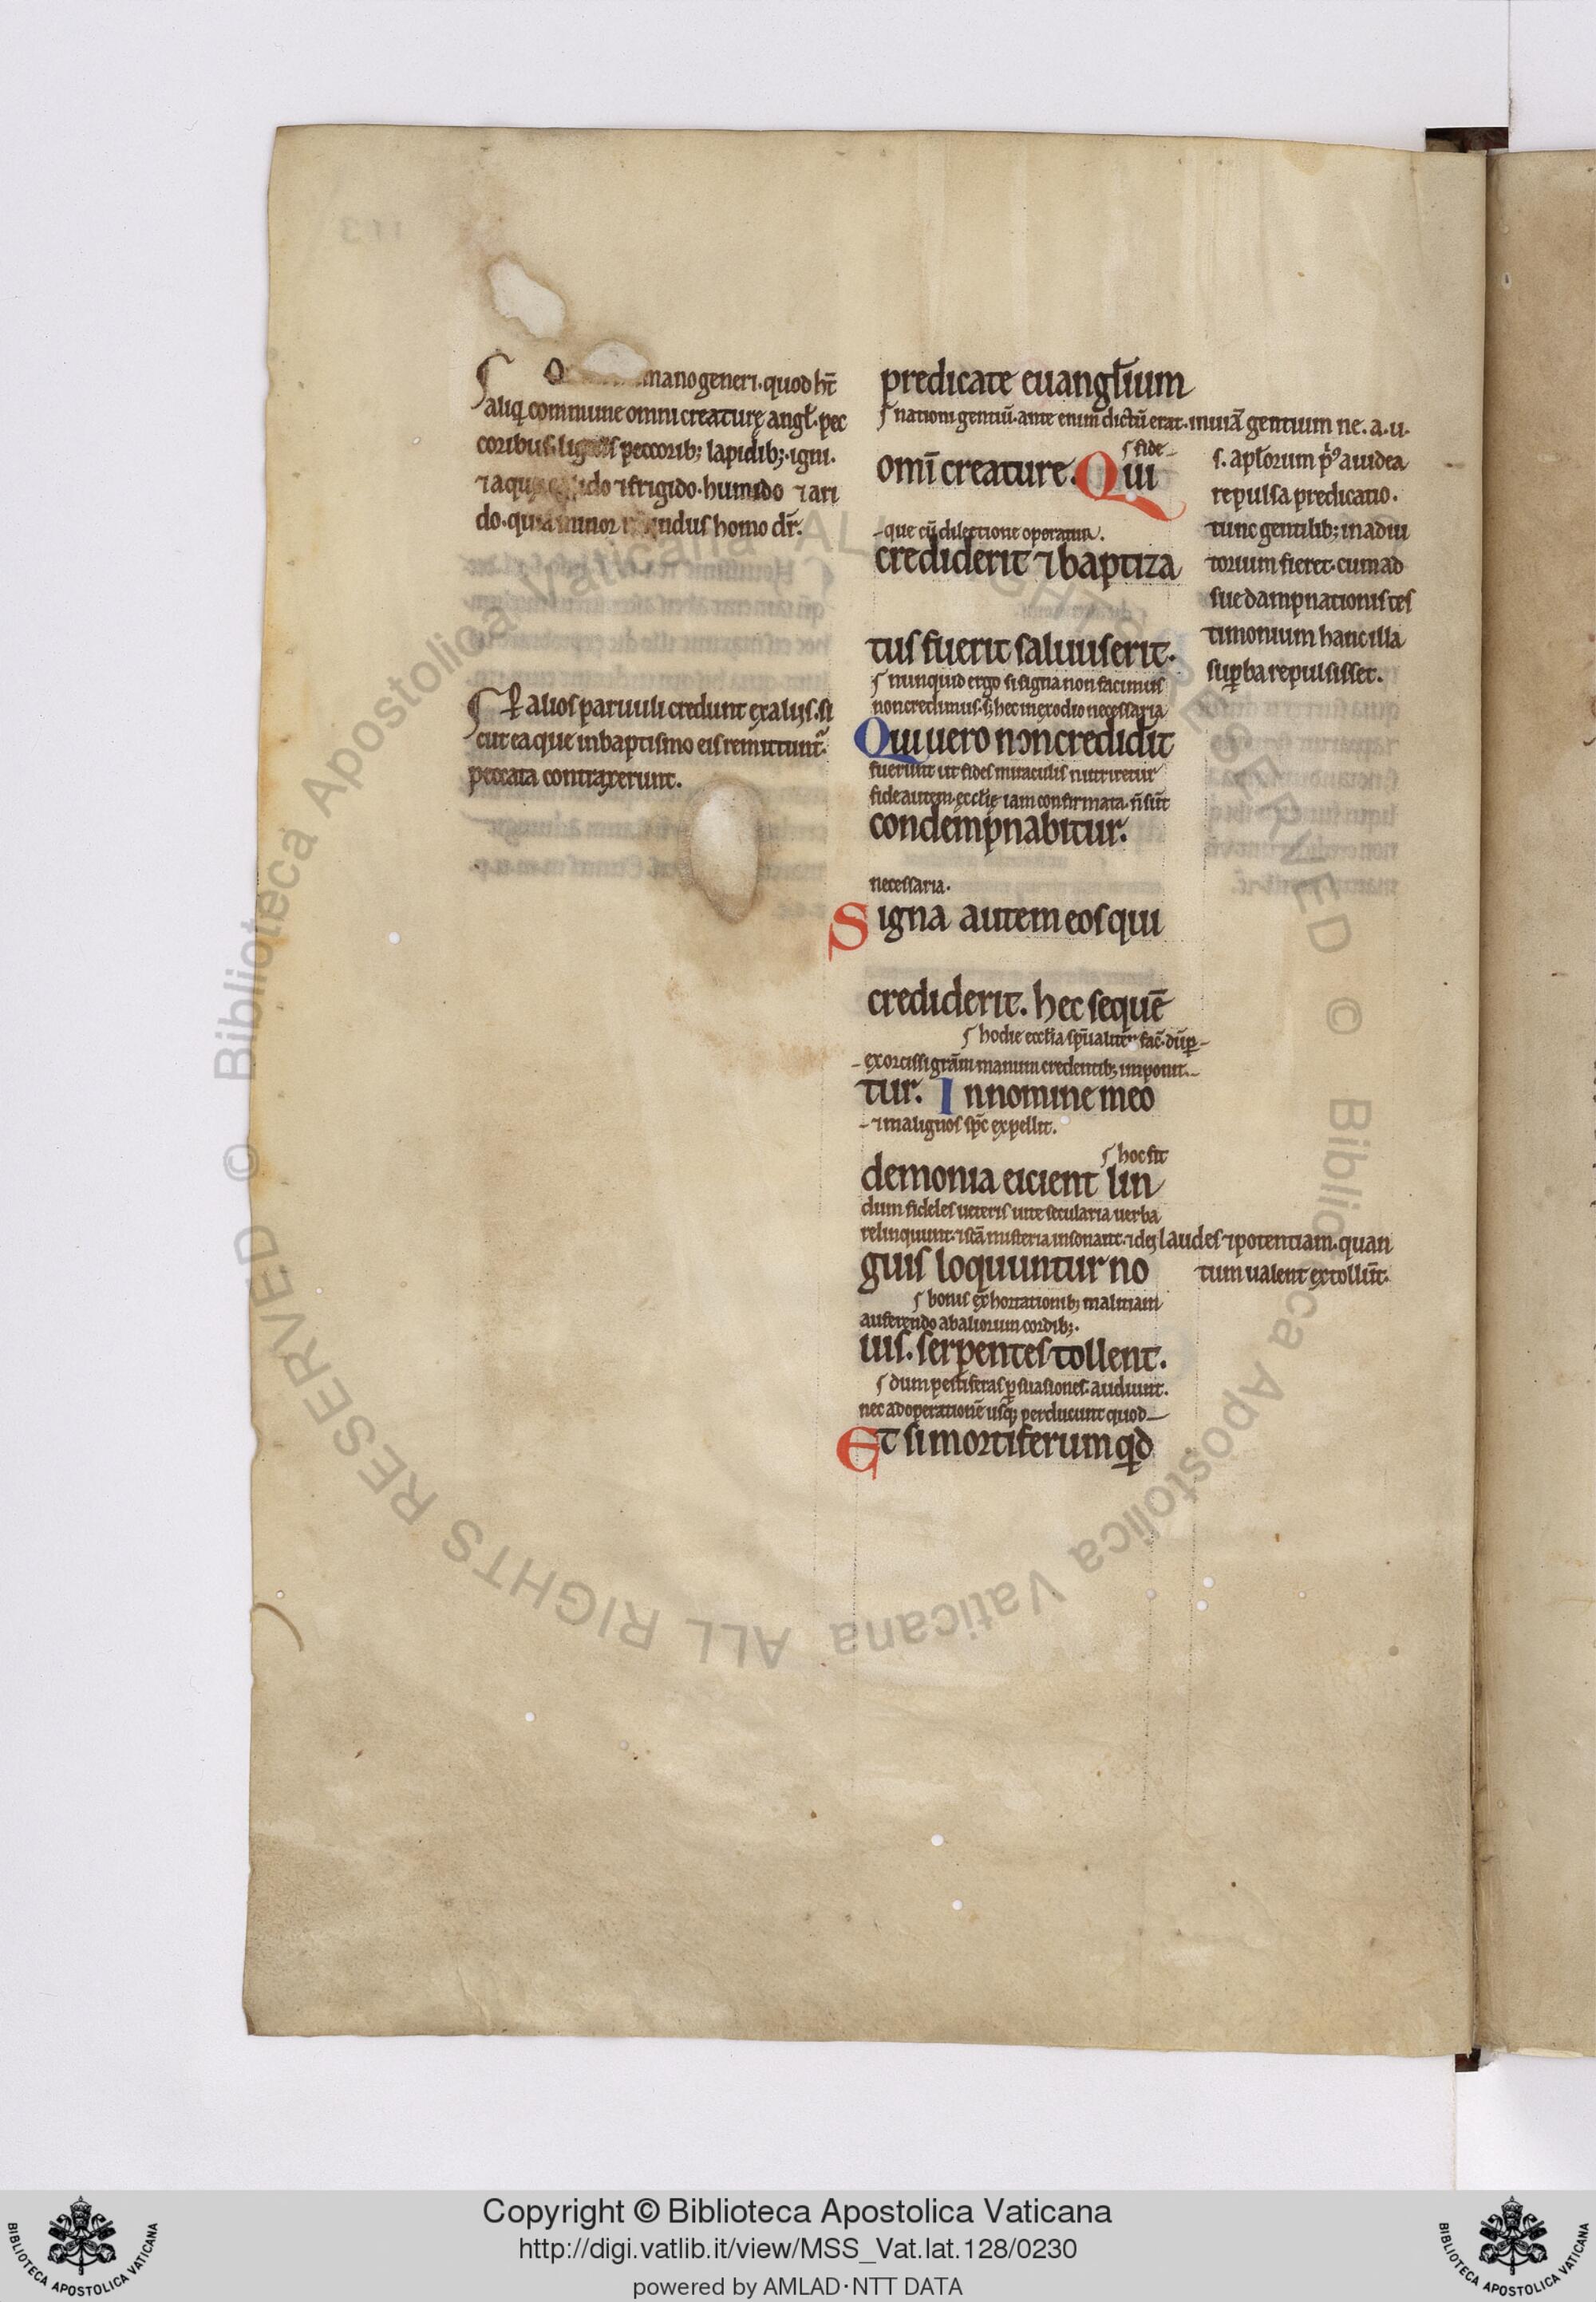 mano generi. quod hr̄t
aliq̢ commune omni creaturę angł. pec
coribus. lignis peccorib; lapidib;. igni.
⁊ aquę ido ⁊ frigido. humido ⁊ ari
do. quia minor ndus homo dr̄.
Ꝑ alios paruuli credunt ex aliis. si
cut ea que in baptismo eis remittunt̃
peccata contraxerunt.
predicate euangłium
nationi gentiū. ante enim dictū erat. inuiā gentium ne. a. u.
fide
omī creature. Qui
que cū dilectione operatur.
crediderit ⁊ baptiza
tus fuerit saluus erit.
nunquid ergo si signa non facimus
non credimus. sꝫ hec in exordio necessaria
Qui uero non credidit
fuerunt ut fides miraculis nutriretur
fide autem ęcclię iam confirmata. n̄ sūt
condempnabitur.
necessaria.
Signa autem eos qui
crediderit. hec sequē
hodie ecclīa spūaliter facē. dū ꝑ
exorcissi grām manum credentib; imponit.
tur. In nomine meo
⁊ malignos spc̄ expellit.
hoc fit
demonia eicient lin
dum fideles ueteris uite secularia uerba
relinquunt. ⁊ scā misteria insonant. ⁊ dei laudes ⁊ potentiam. quan
guis loquuntur no
tum ualent extollūt.
bonis exhortationib; malitiam
auferendo ab aliorum cordib;.
uis. serpentes tollent.
dum pestiferas ꝑsuasiones. audiunt.
nec ad operationē usq; perducunt quod
Et si mortiferum qd
s. apłorum p̄ꝰ a iudea
repulsa predicatio.
tunc gentilib; in adiu
torium fieret. cum ad
sue dampnationis tes
timonium hanc illa
suꝑba repulisset.
Copyright © Biblioteca Apostolica Vaticana
http://digi.vatlib.it/view/MSS_Vat.lat.128/0230
powered by AMLAD·NTT DATA
BIBLIOTECA APOSTOLICA VATICANA
BIBLIOTECA APOSTOLICA VATICANA
© Biblioteca Apostolica Vaticana ALL RIGHTS RESERVED © Biblioteca Apostolica Vaticana ALL RIGHTS RESERVED